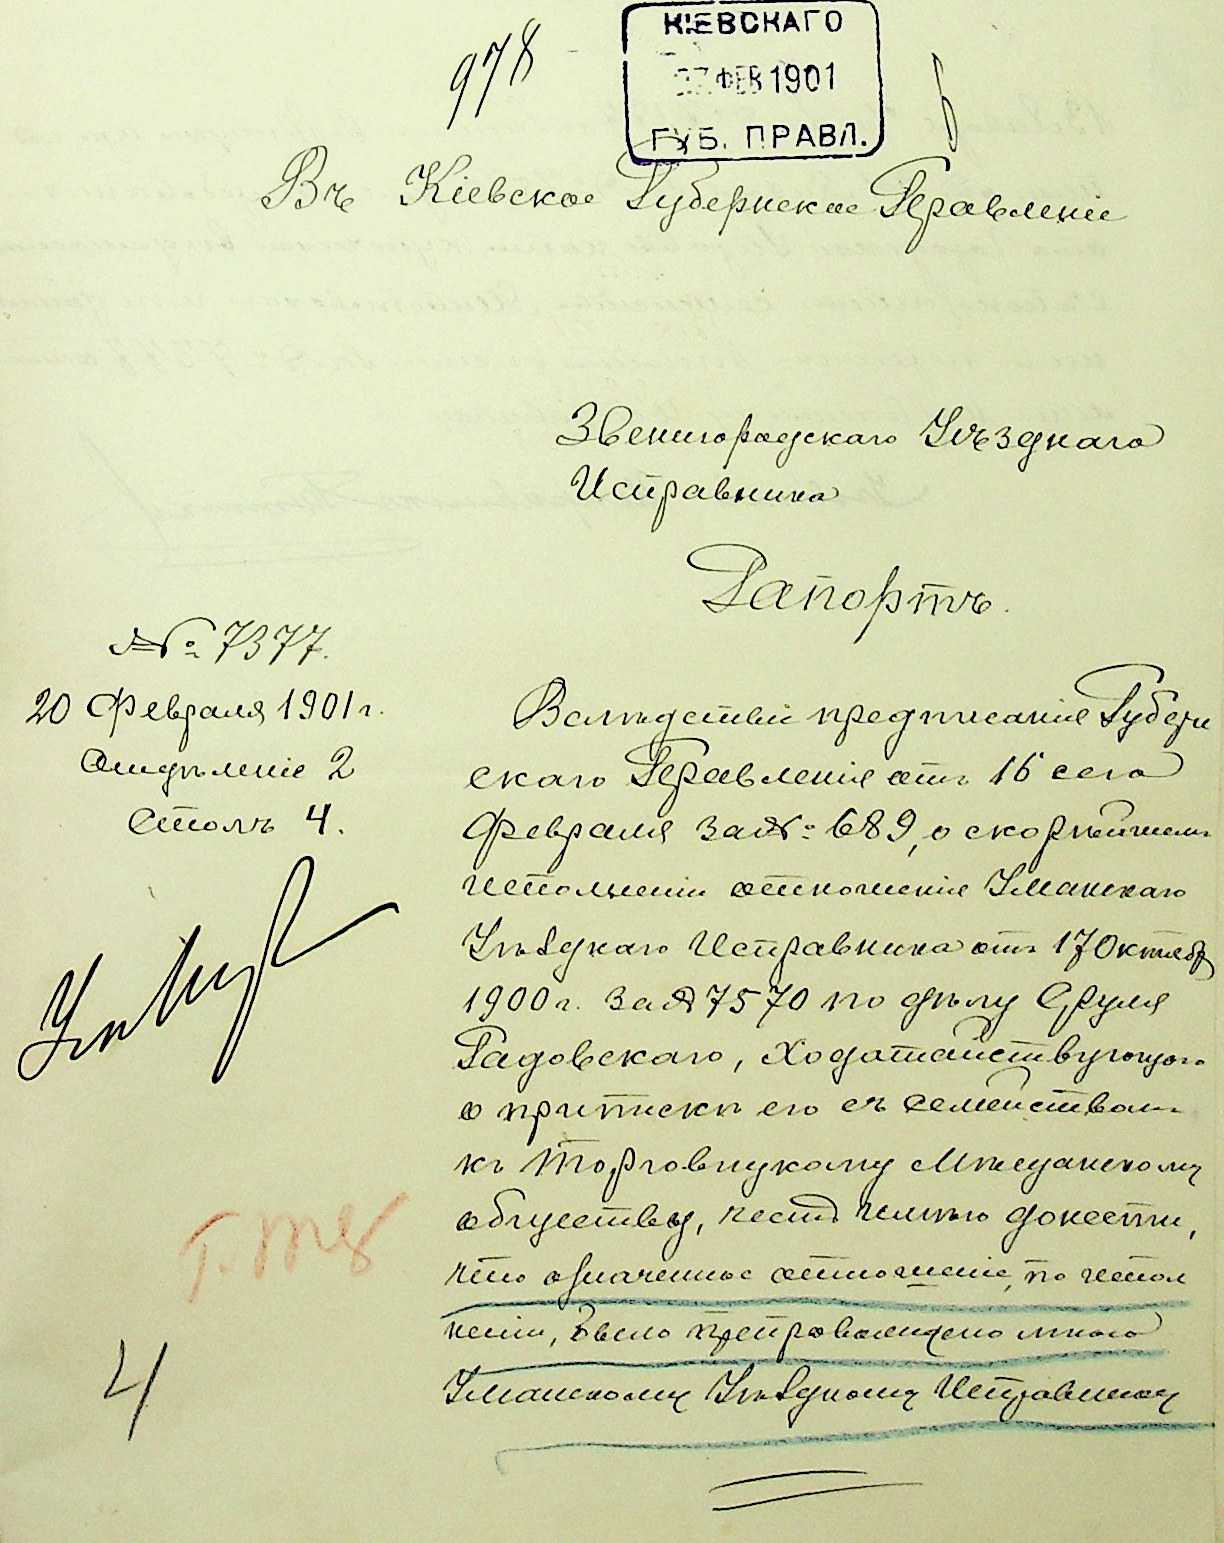 978
КІЕВСКАГО
27 ФЕВ 1901
ГУБ. ПРАВЛ.
Въ Кіевское Губернское Правленіе
Звенигородскаго Уѣзднаго
Исправника
Рапортъ.
№ 7377.
20 Февраля 1901 г.
Отдѣленіе 2
Столъ 4.
Вслѣдствіе предписанія Губерн
скаго Правленія отъ 16 сего
Февраля за № 689, о скорѣйшемъ
исполненіи отношенія Уманскаго
Уѣзднаго Исправника отъ 17 Октябр
1900 г. за № 7570 по дѣлу Сруля
Радовскаго, ходатайствующаго
о припискѣ его съ семействомъ
къ Торговицкому Мѣщанскому
обществу, честь имѣю донести,
что означенное отношеніе, по испол
неніи, было препровождено мною
Уманскому Уѣздному Исправнику
4